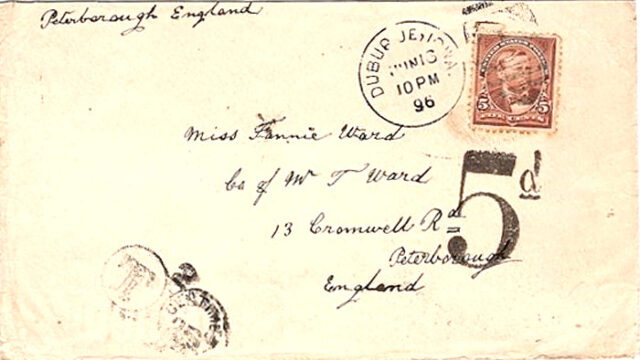 Peterborough England
DUBUQUE, IOWA.
JUN 16
10 PM
96
UNITED STATES
5 5
Miss Fannie Ward
Co of Mr T Ward
13 Cromwell Rd
Peterborough
England
5d
T